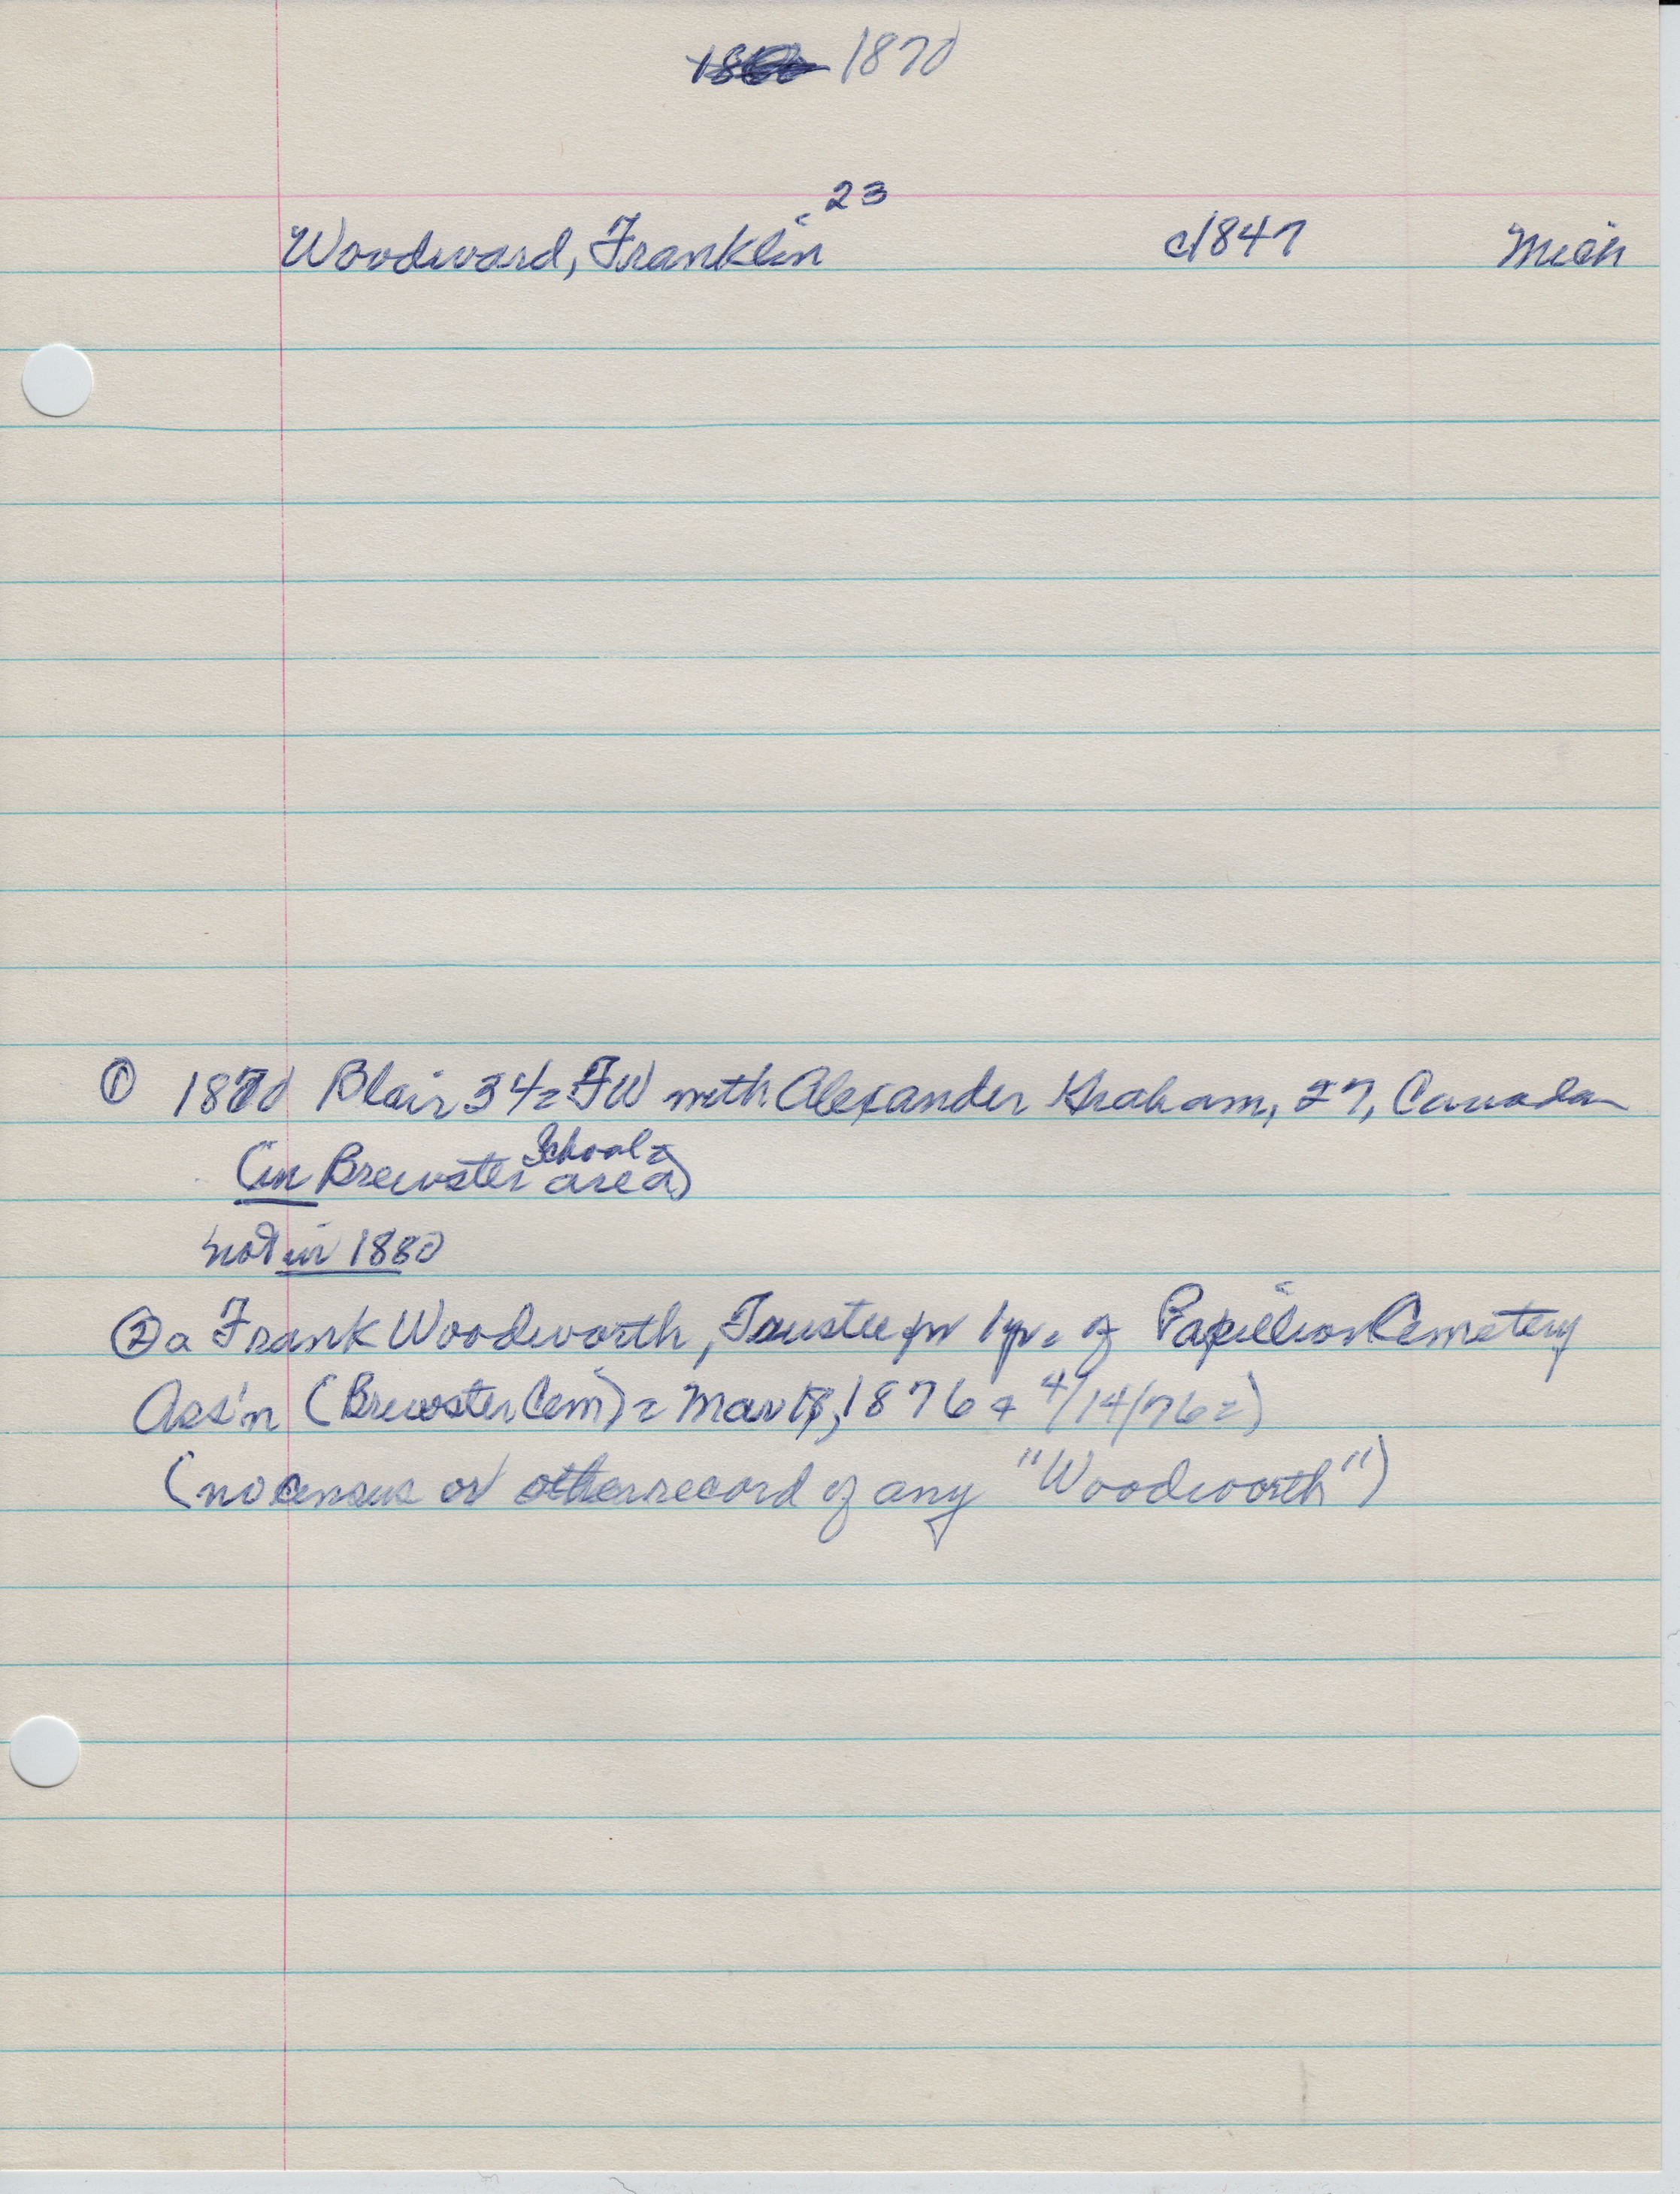 1870
23
Woodward, Franklin c1847 Mich
① 1870 Blair 342 FW with Alexander Graham, 27, Canada
School
(in Brewster area)
not in 1880
② a Frank Woodworth, Trustee for 1 yr. of Papillion Cemetery
Ass'n (Brewster Cem) = Mar 18, 1876 & 4/14/76 =)
(no census or other record of any "Woodworth")